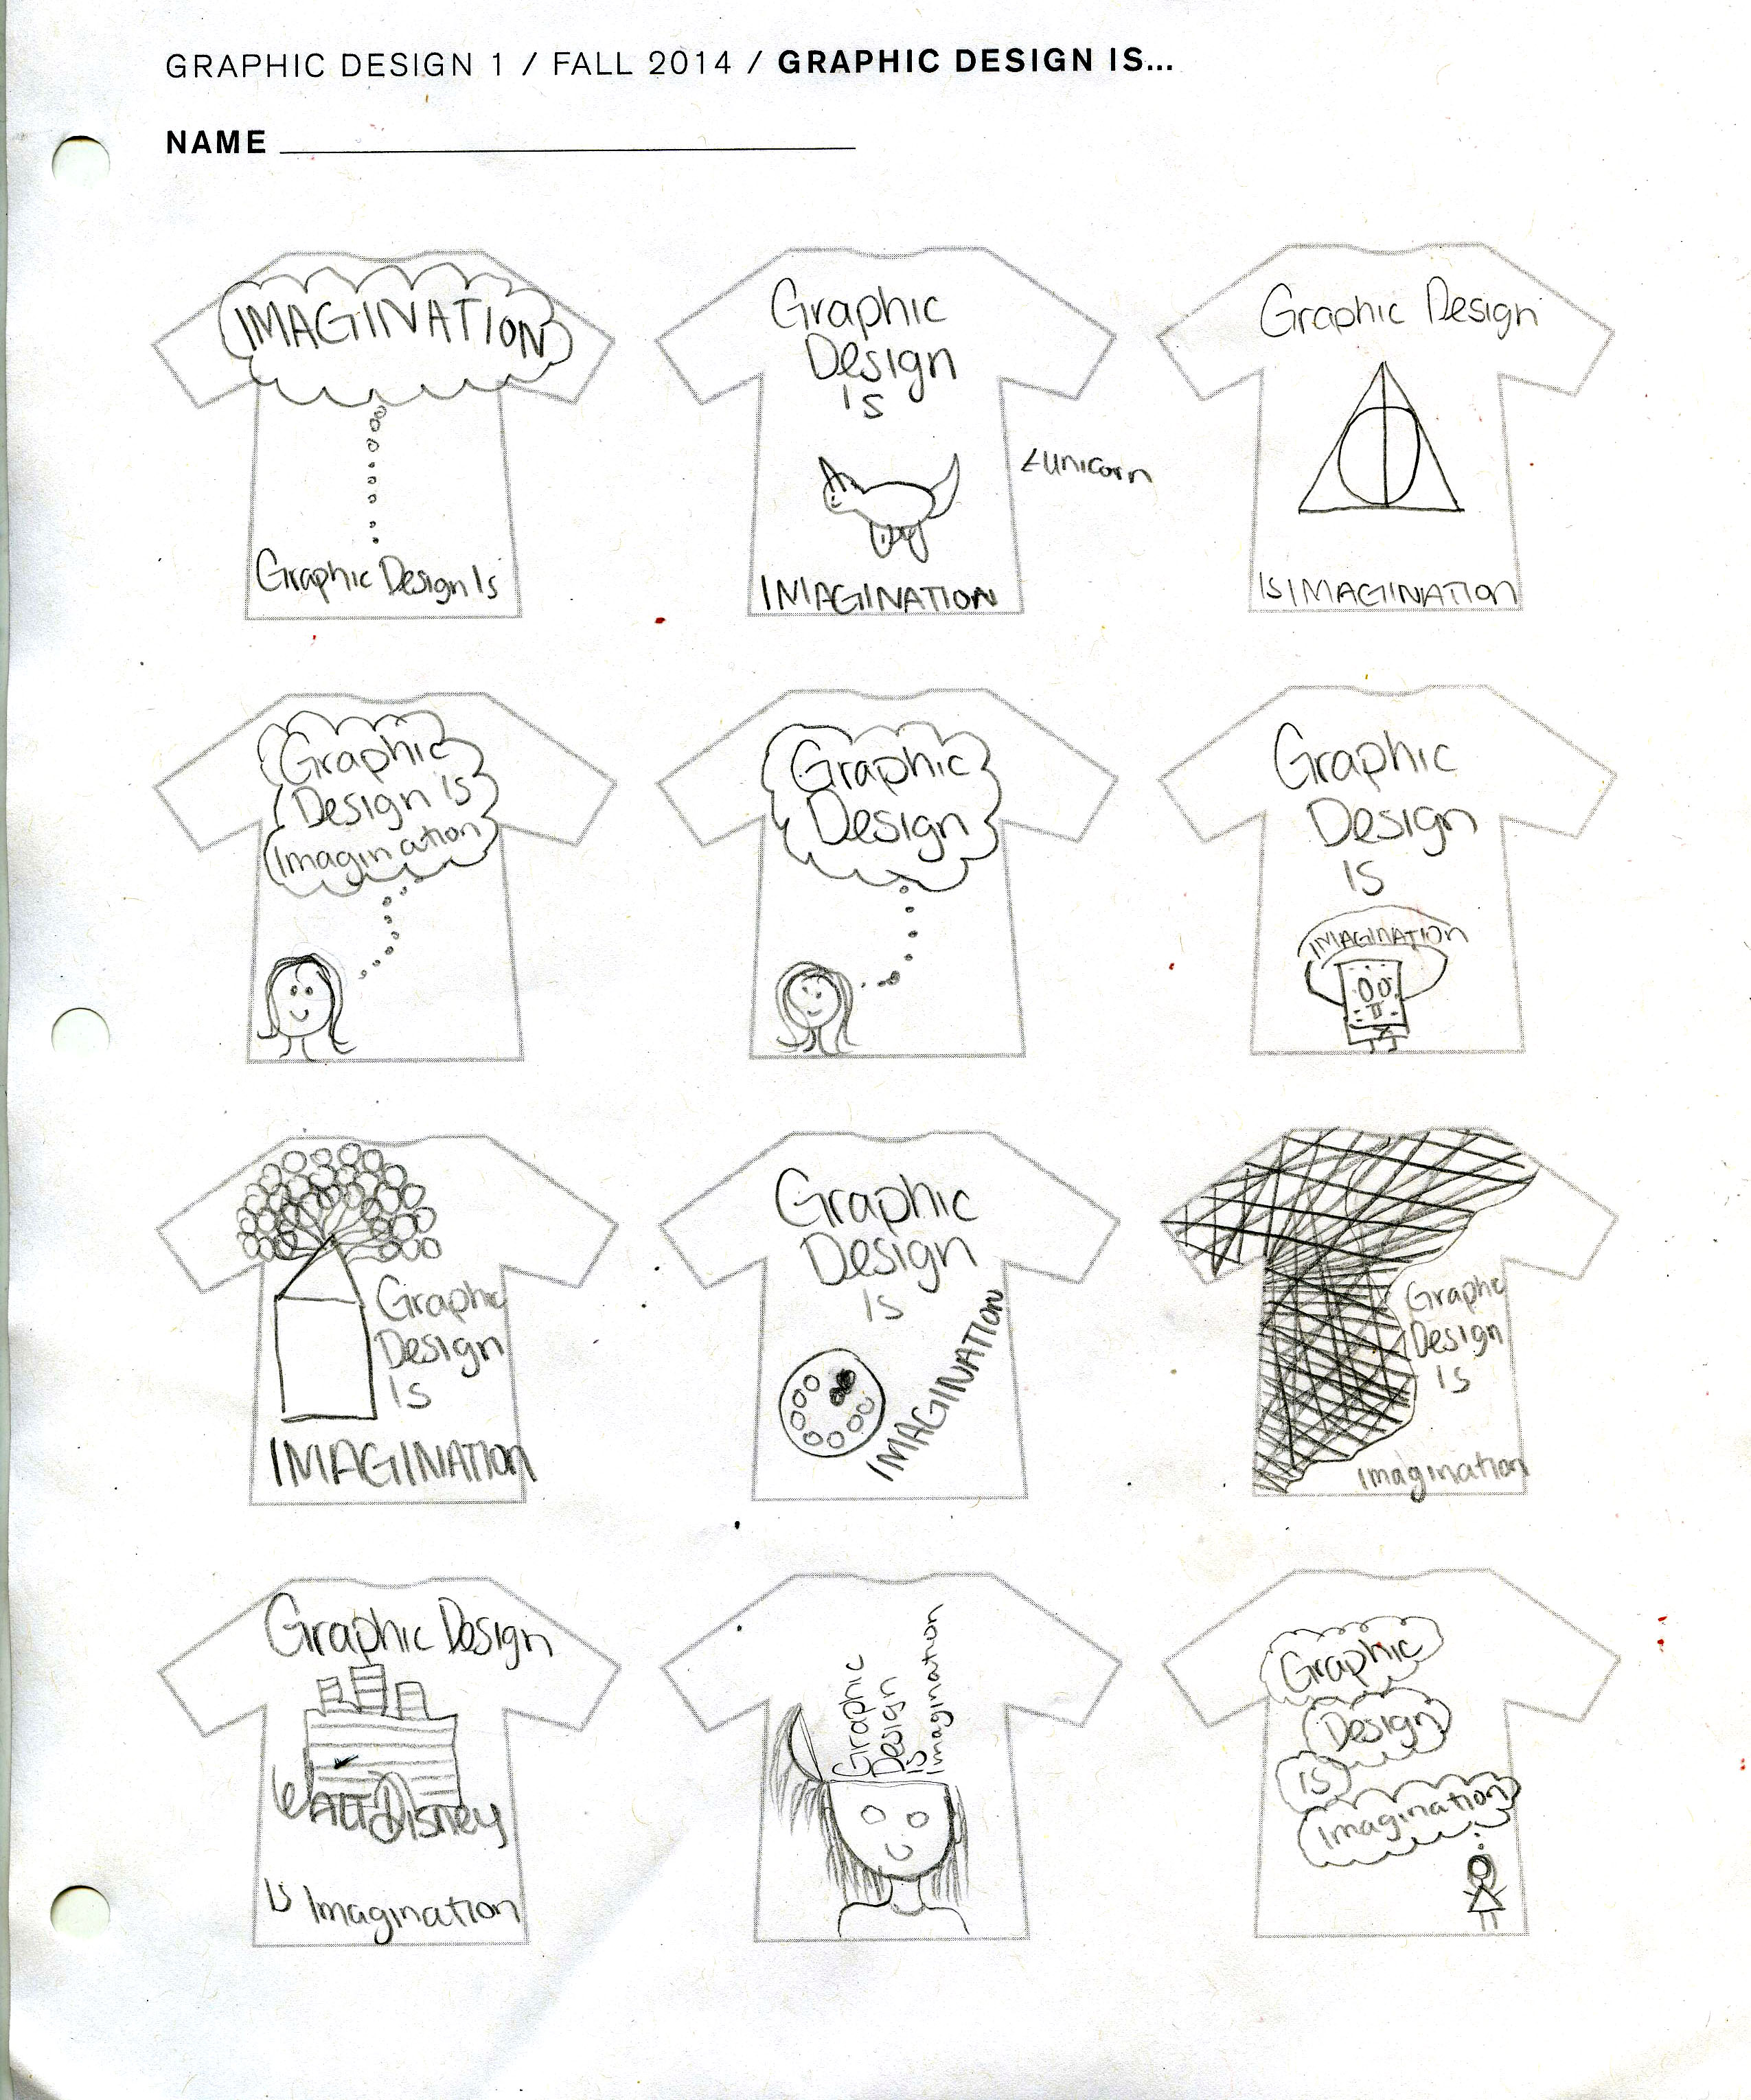 GRAPHIC DESIGN 1 / FALL 2014 / GRAPHIC DESIGN IS...
NAME
IMAGINATION
Graphic Design Is
Graphic
Design
Is
<unicorn
IMAGINATION
Graphic Design
Is IMAGINATION
Graphic
Design is
Imagination
Graphic
Design
Graphic
Design
IS
IMAGINATION
Graphic
Design
Is
IMAGINATION
Graphic
Design
Is
IMAGINATION
Graphic
Design
Is
imagination
Graphic Design
Walt Disney
Is Imagination
Graphic
Design
is
imagination
Graphic
Design
is
imagination